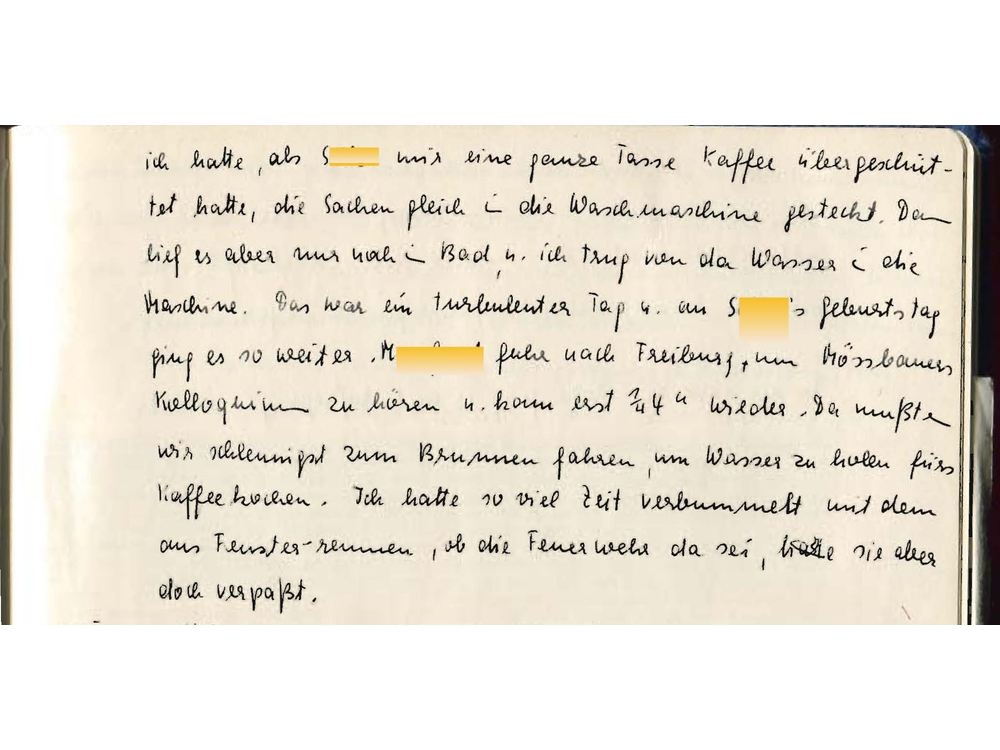 ich hatte, als S mir eine ganze Tasse Kaffee übergeschüt-
tet hatte, die Sachen gleich in die Waschmaschine gesteckt. Dann
lief es aber nur noch im Bad u. ich trug von da Wasser in die
Maschine. Das war ein turbulenter Tag u. an S's Geburtstag
ging es so weiter. M fuhr nach Freiburg, um Mössbauers
Kolloquium zu hören u. kam erst 3/4 4 h wieder. Da mußten
wir schleunigst zum Brunnen fahren, um Wasser zu holen fürs
Kaffeekochen. Ich hatte so viel Zeit verbummelt mit dem
ans Fenster-rennen, ob die Feuerwehr da sei, hatte sie aber
doch verpaßt.